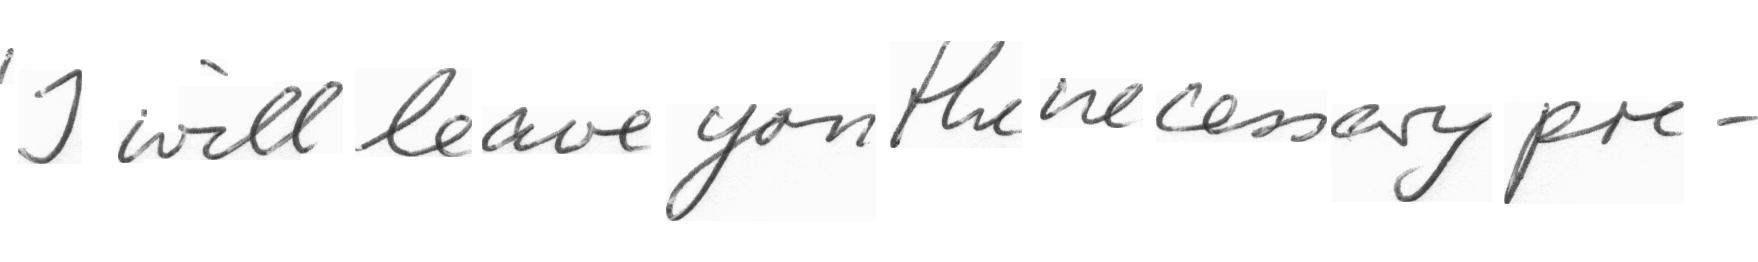 'I will leave you the necessary pre-